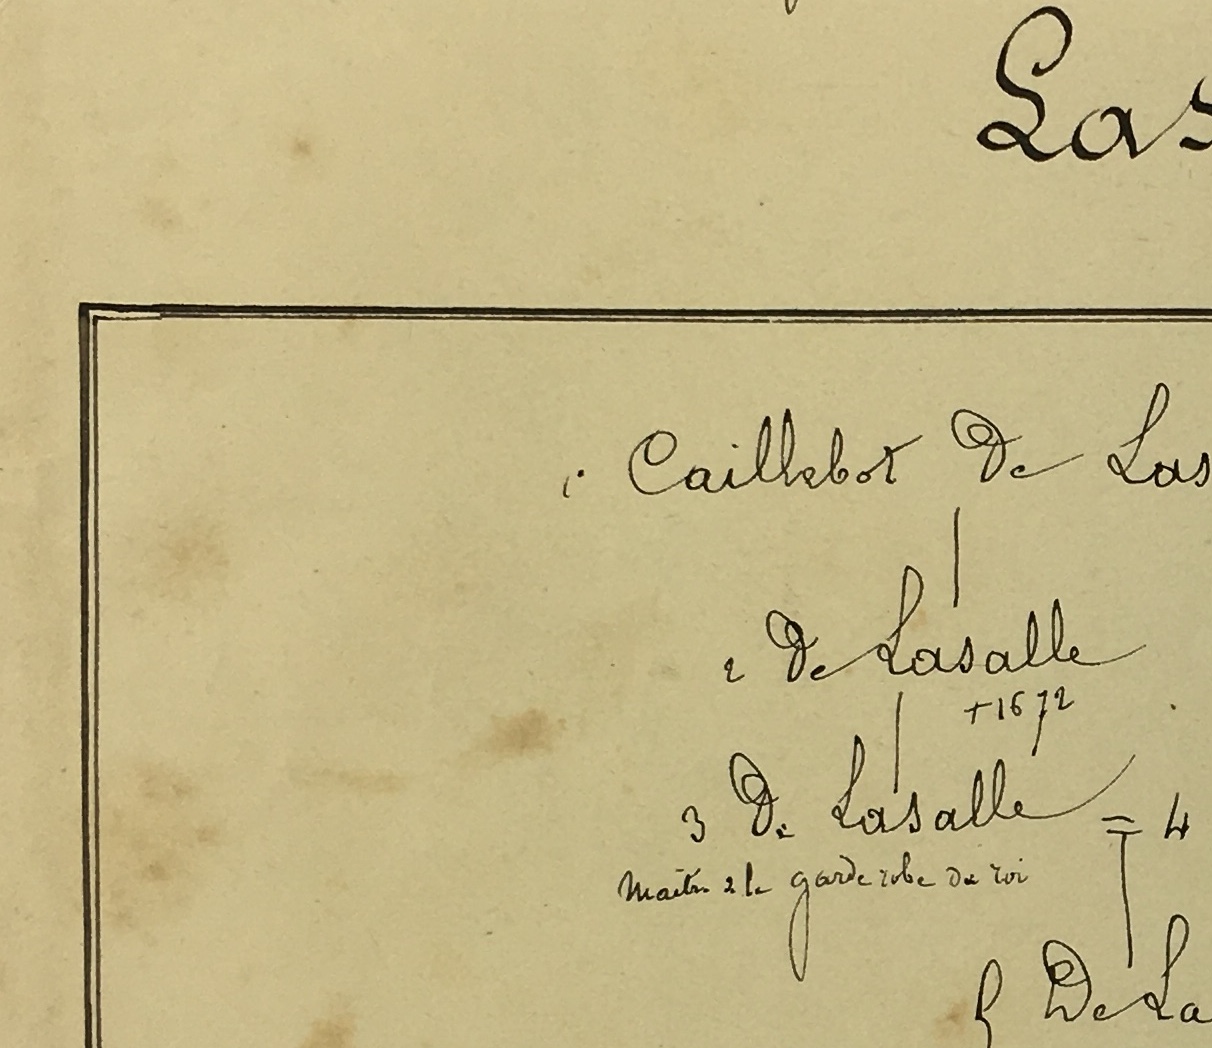 Las
1. Caillebot De Las
2 De Lasalle
+1672
3 De Lasalle = 4
Maitre de la garderobe du roi
5 De La